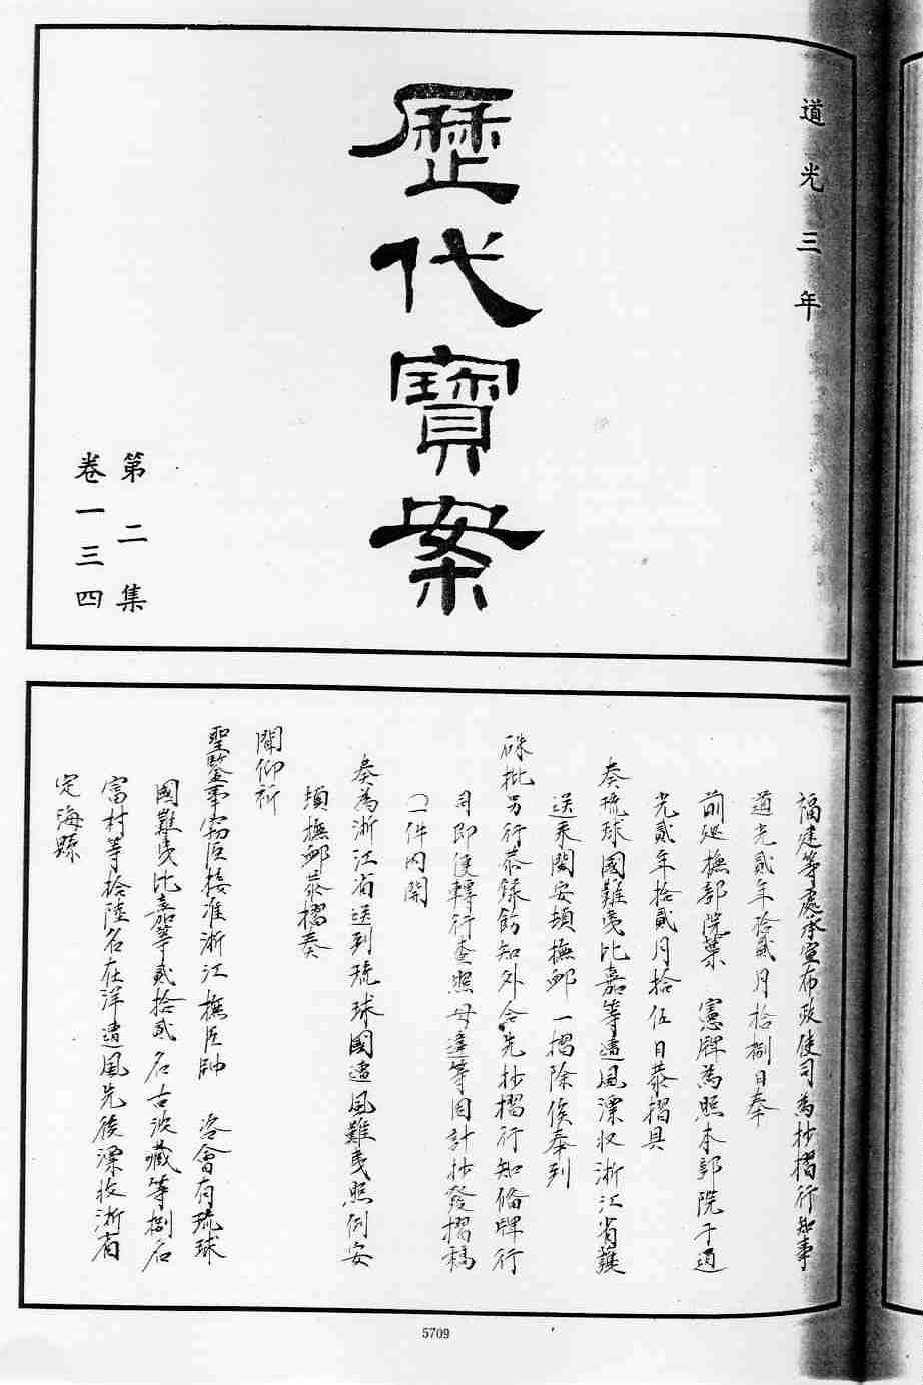 道光三年
歷代寶案
第二集
卷一三四
福建等處承宣布政使司為抄摺行知事
道光貳年拾貳月拾捌日奉
前廵撫部院葉 憲牌為照本部院于道
光貳年拾貳月拾伍日恭摺具
奏琉球國難夷比嘉等遭風漂收浙江省護
送來閩安頓撫卹一摺除俟奉到
硃批另行恭錄飭知外合先抄摺行知偹牌行
司即便轉行查照毋違等因計抄發摺稿
一件內開
奏為浙江省送到琉球國遭風難夷照例安
頓撫卹恭摺奏
聞仰祈
聖鑒事竊臣接准浙江撫臣帥 咨會有琉球
國難夷比嘉等貳拾貳名古波藏等捌名
富村等拾陸名在洋遭風先後漂收浙省
定海縣
5709